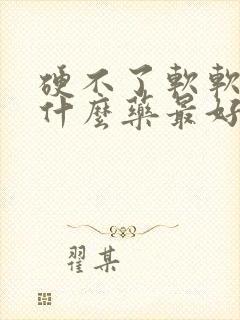 硬不了軟軟
什麼藥最好
翟某